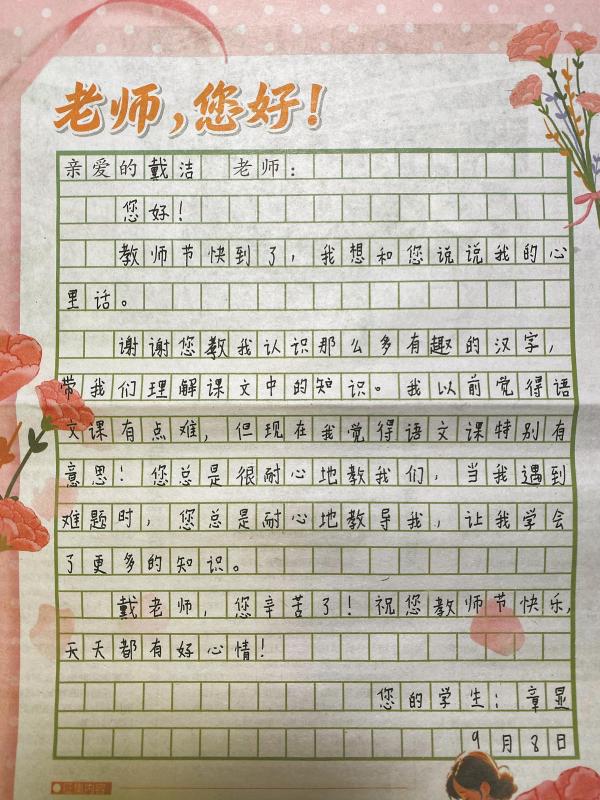 老师,您好!
亲爱的戴洁 老师:
您好!
教师节快到了,我想和您说说我的心
里话。
谢谢您教我认识那么多有趣的汉字,
带我们理解课文中的知识。我以前觉得语
文课有点难,但现在我觉得语文课特别有
意思!您总是很耐心地教我们,当我遇到
难题时,您总是耐心地教导我,让我学会
了更多的知识。
戴老师,您辛苦了!祝您教师节快乐,
天天都有好心情!
您的学生:章显
9月8日